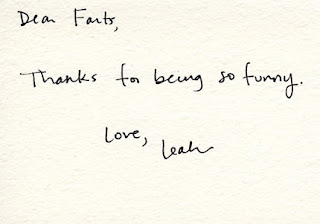 Dear Farts,
Thanks for being so funny.
Love,
Leah